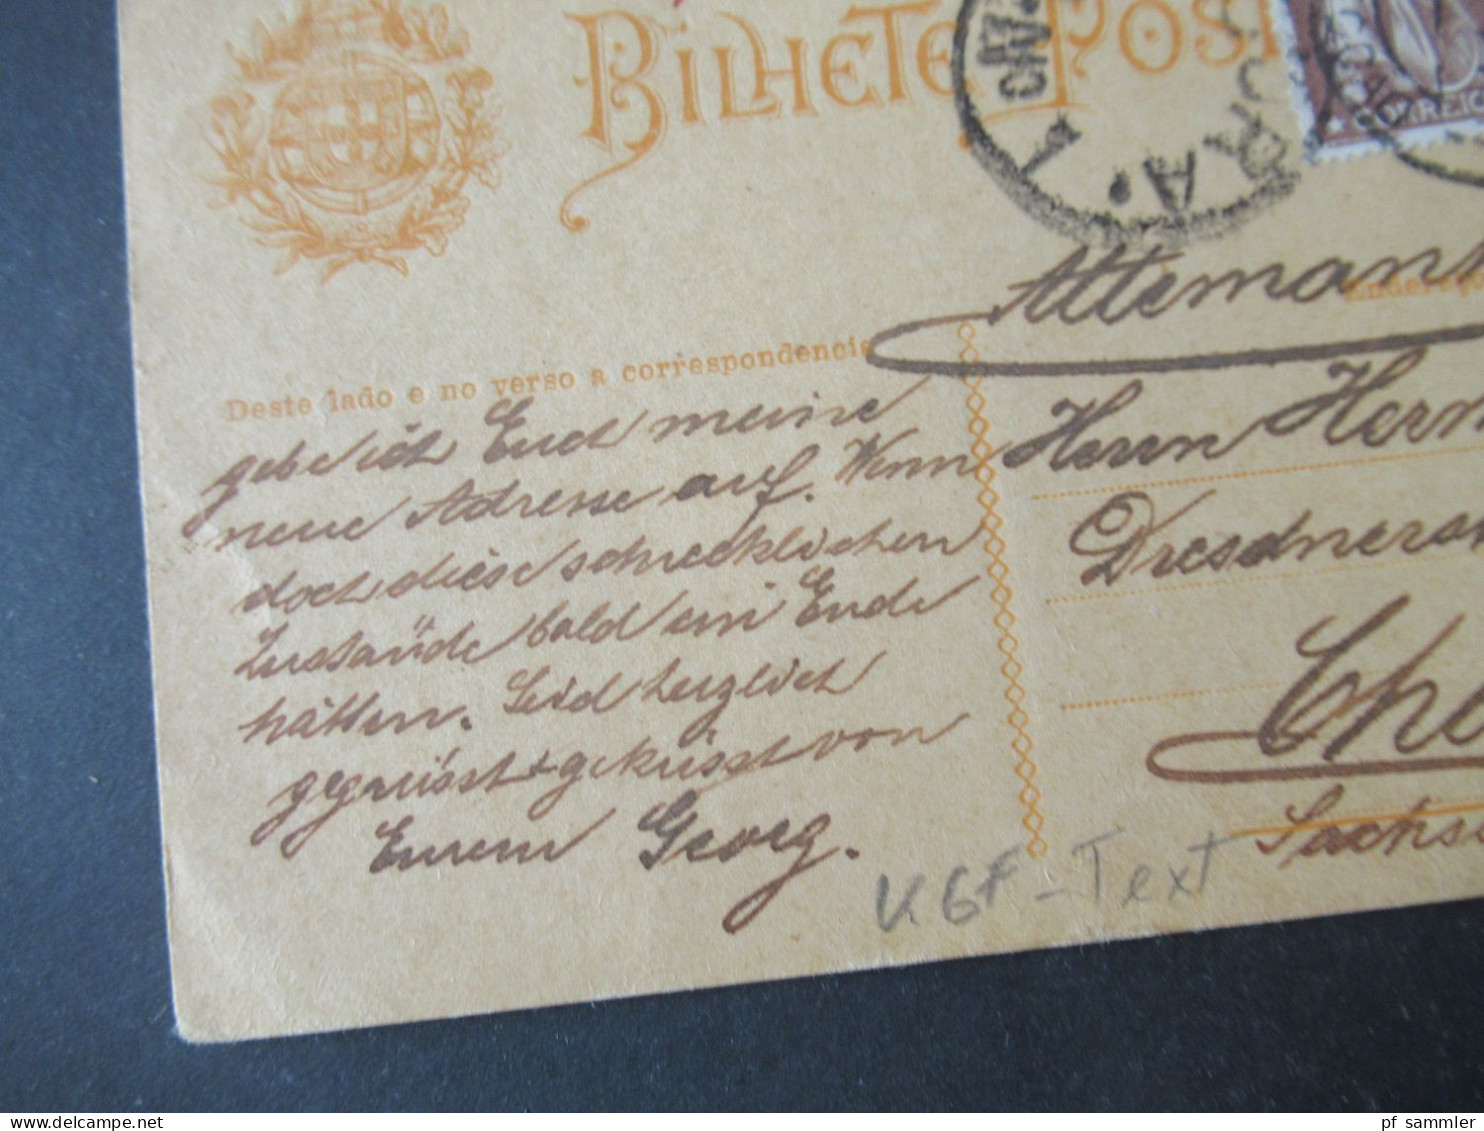 BILHETE POS
CORREIO
Allemanh
Deste lado e no verso a correspondencia
gebe ich Euch meine
neue Adresse auf. Wenn
doch diese schrecklichen
Zustände bald ein Ende
hätten. Seid herzlich
gegrüsst + geküsst von
Eurem Georg.
Herrn Herm
Dresdnerst
Che
Sachs
K.G.F-Text
pf sammler